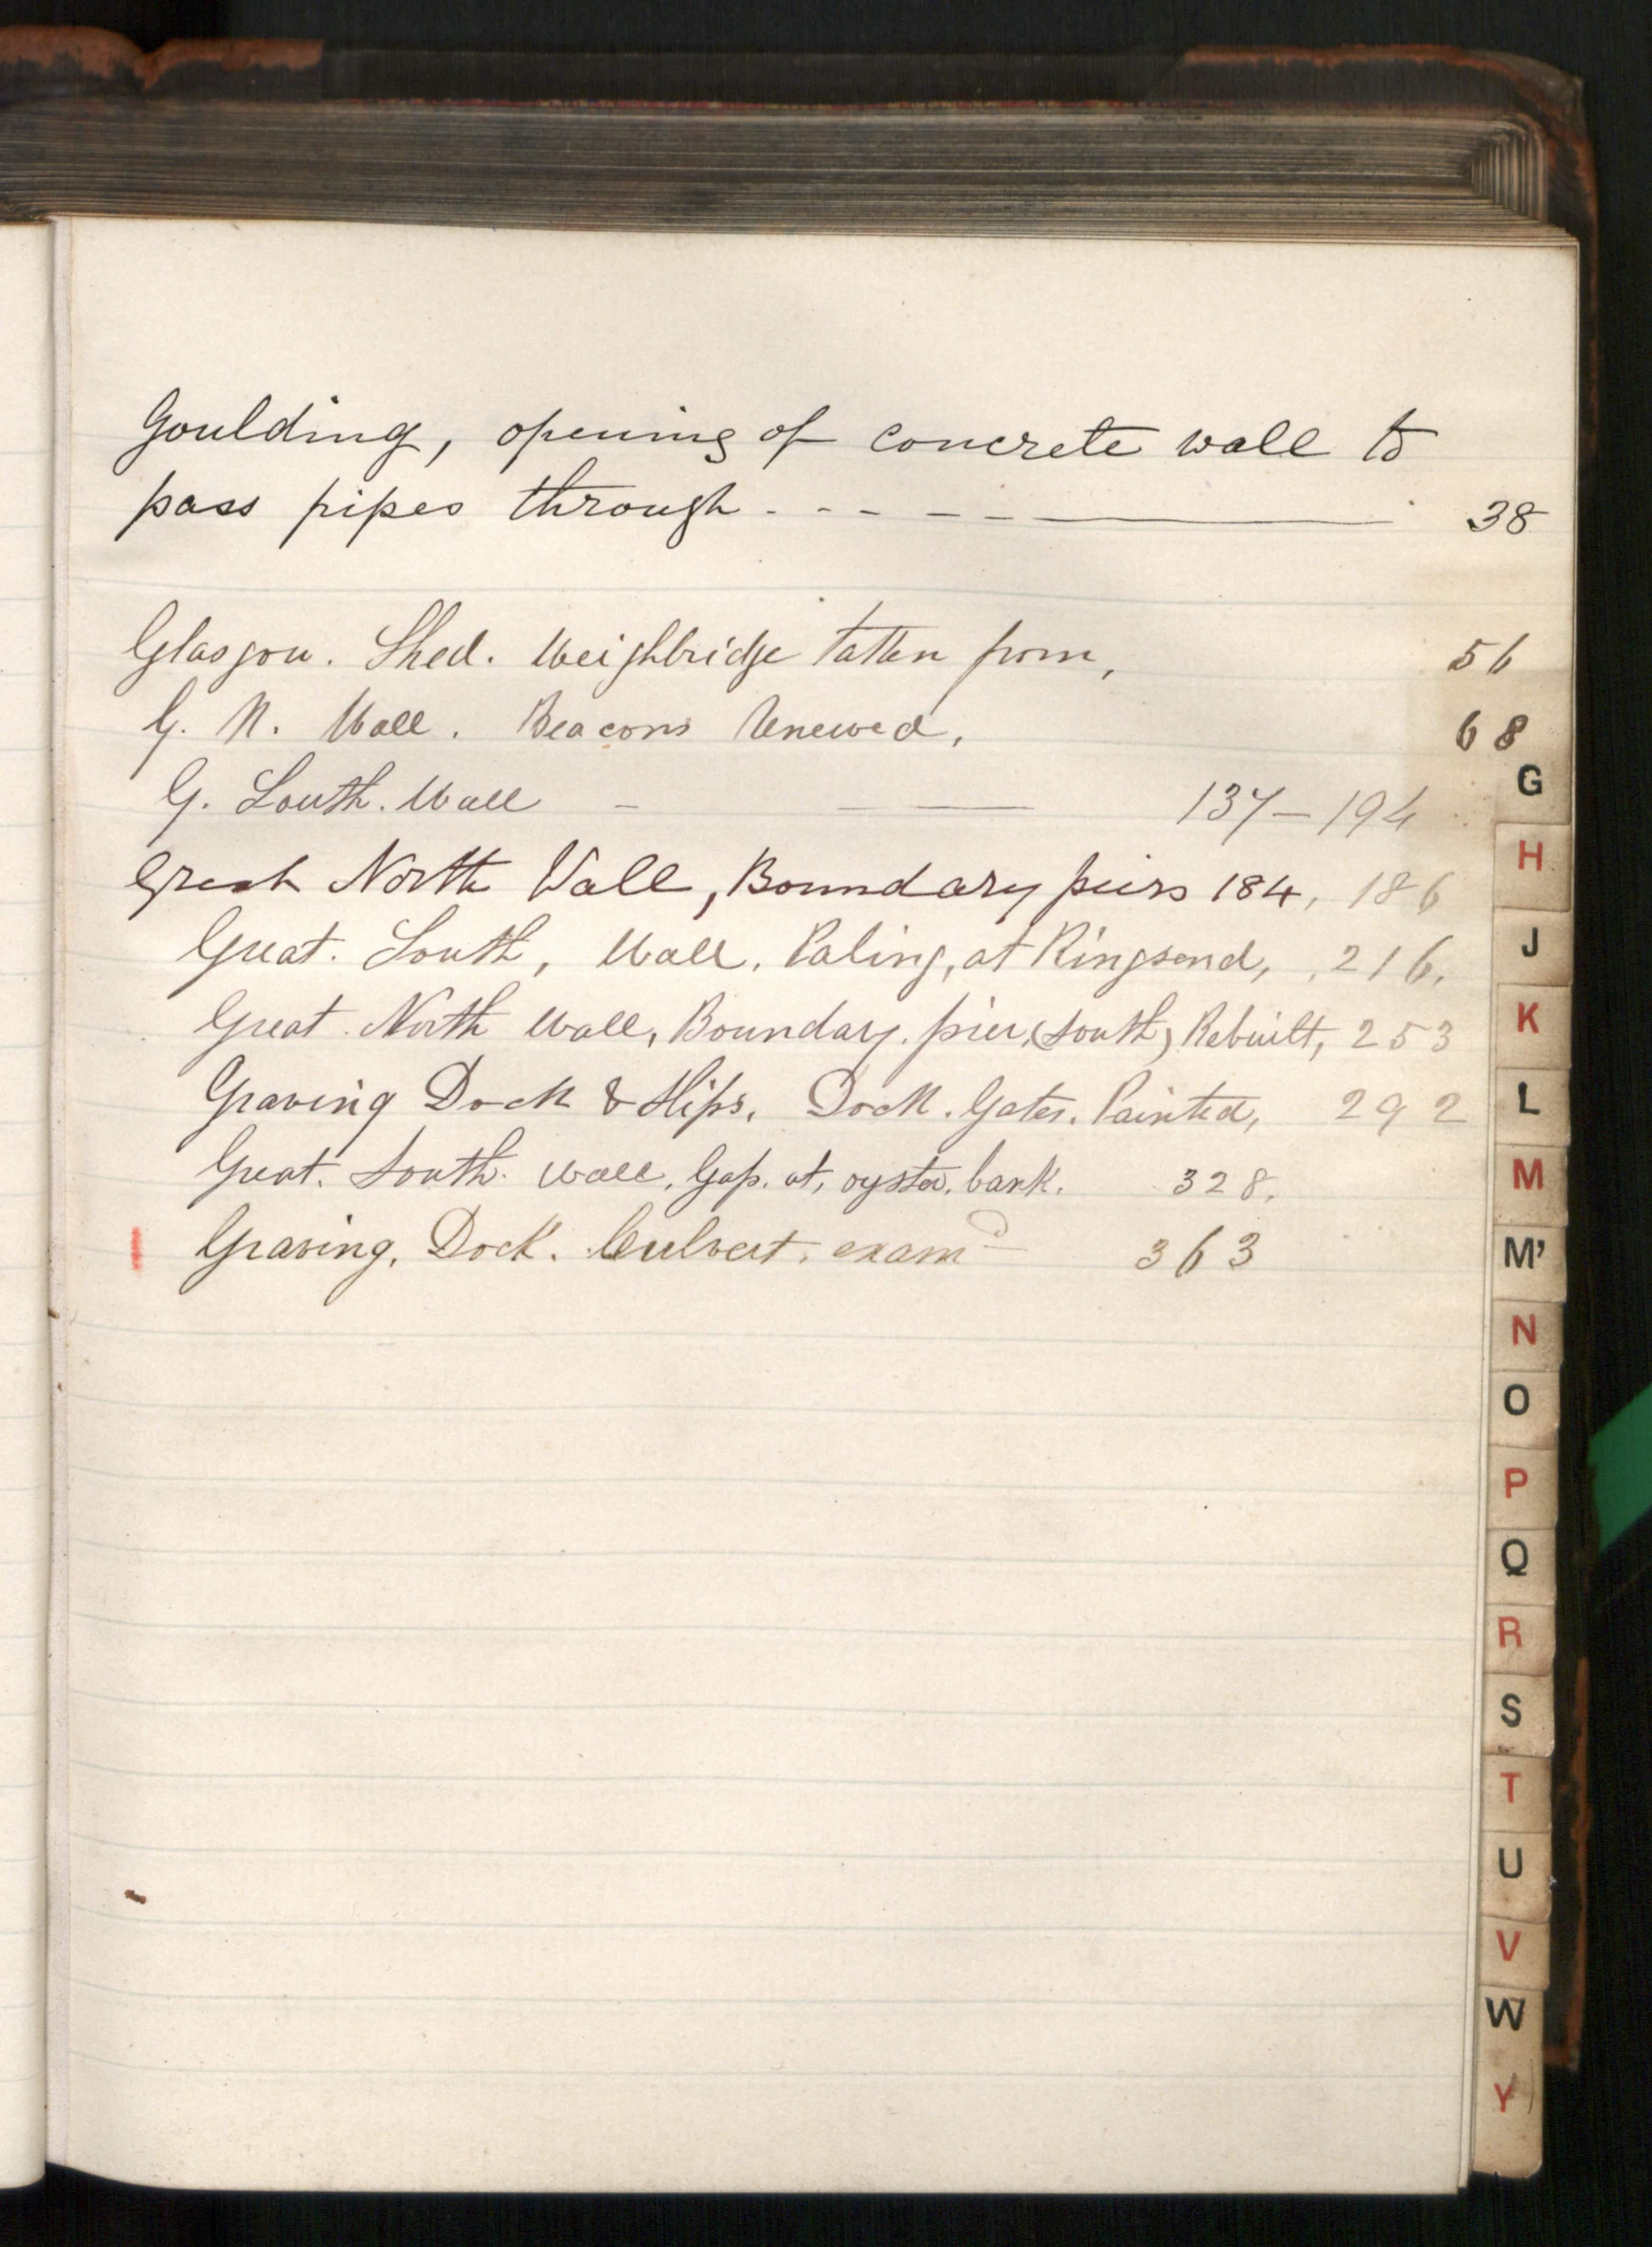 Goulding, opening of concrete wall to
pass pipes through - - - - - ——— 38
Glasgow. Shed. Weighbridge taken from, 56
G. N. Wall. Beacons Renewed, 68
G. South. Wall - —— 137—194
Great North Wall, Boundary piers 184, 186
Great. South, Wall. Paling, at Ringsend, 216.
Great North Wall, Boundary. pier, (South) Rebuilt, 253
Graving Dock & Slips. Dock. Gates. Painted, 292
Great. South. Wall, Gap. at, oyster. bank. 328.
Graving, Dock. Culvert. examd 363
G
H
J
K
L
M
M'
N
O
P
Q
R
S
T
U
V
W
Y